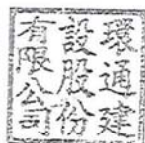 環通建
設股份
有限公司